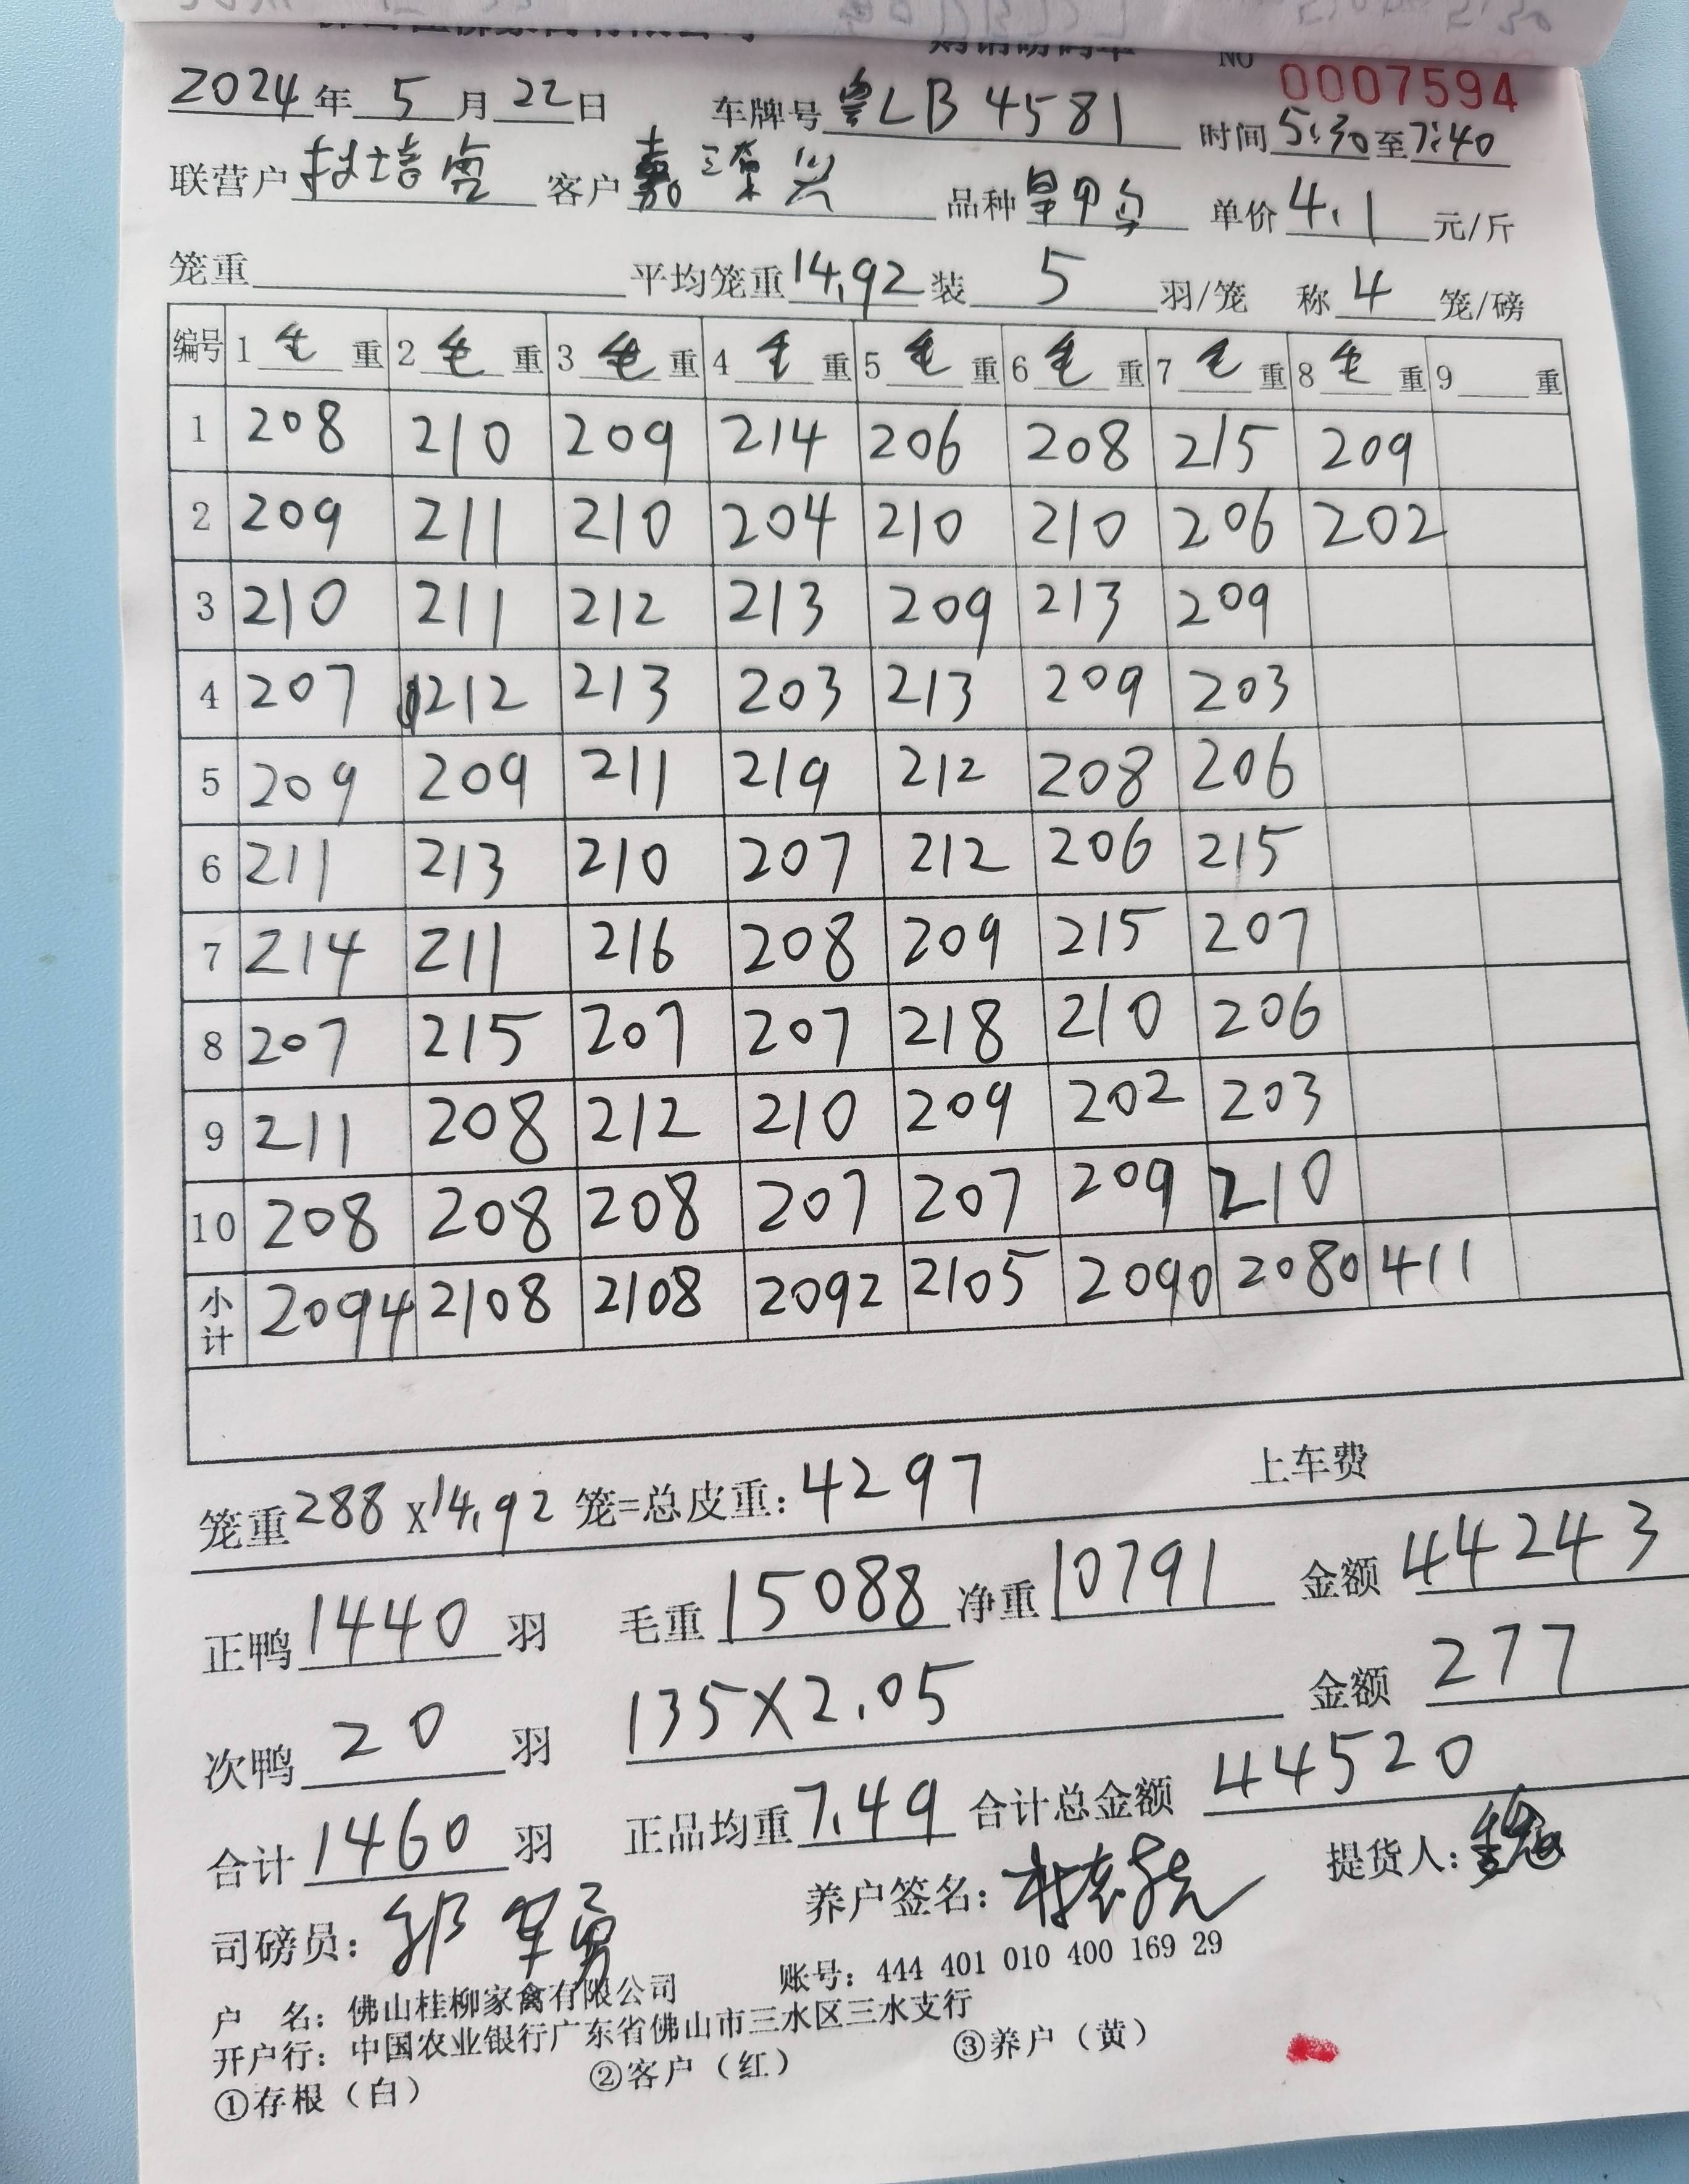 NO 0007594
2024年 5 月 22日 车牌号 粤LB 4581 时间 5:30 至 7:40
联营户 林培 客户 嘉 兴 品种 单价 4.1 元/斤
笼重 平均笼重 14.92 装 5 羽/笼 称 4 笼/磅
编号 1 毛 重 2 毛 重 3 毛 重 4 毛 重 5 毛 重 6 毛 重 7 毛 重 8 毛 重 9 重
1 208 210 209 214 206 208 215 209
2 209 211 210 204 210 210 206 202
3 210 211 212 213 209 213 209
4 207 212 213 203 213 209 203
5 209 209 211 219 212 208 206
6 211 213 210 207 212 206 215
7 214 211 216 208 209 215 207
8 207 215 207 207 218 210 206
9 211 208 212 210 209 202 203
10 208 208 208 207 207 209 210
小计 2094 2108 2108 2092 2105 2090 2080 411
上车费
笼重 288 x 14.92 笼=总皮重: 4297
正鸭 1440 羽 毛重 15088 净重 10791 金额 44243
次鸭 20 羽 135X2.05 金额 277
合计 1460 羽 正品均重 7.49 合计总金额 44520
司磅员: 邹军勇 养户签名: 提货人:
户 名: 佛山桂柳家禽有限公司 账号: 444 401 010 400 169 29
开户行: 中国农业银行广东省佛山市三水区三水支行
①存根（白） ②客户（红） ③养户（黄）